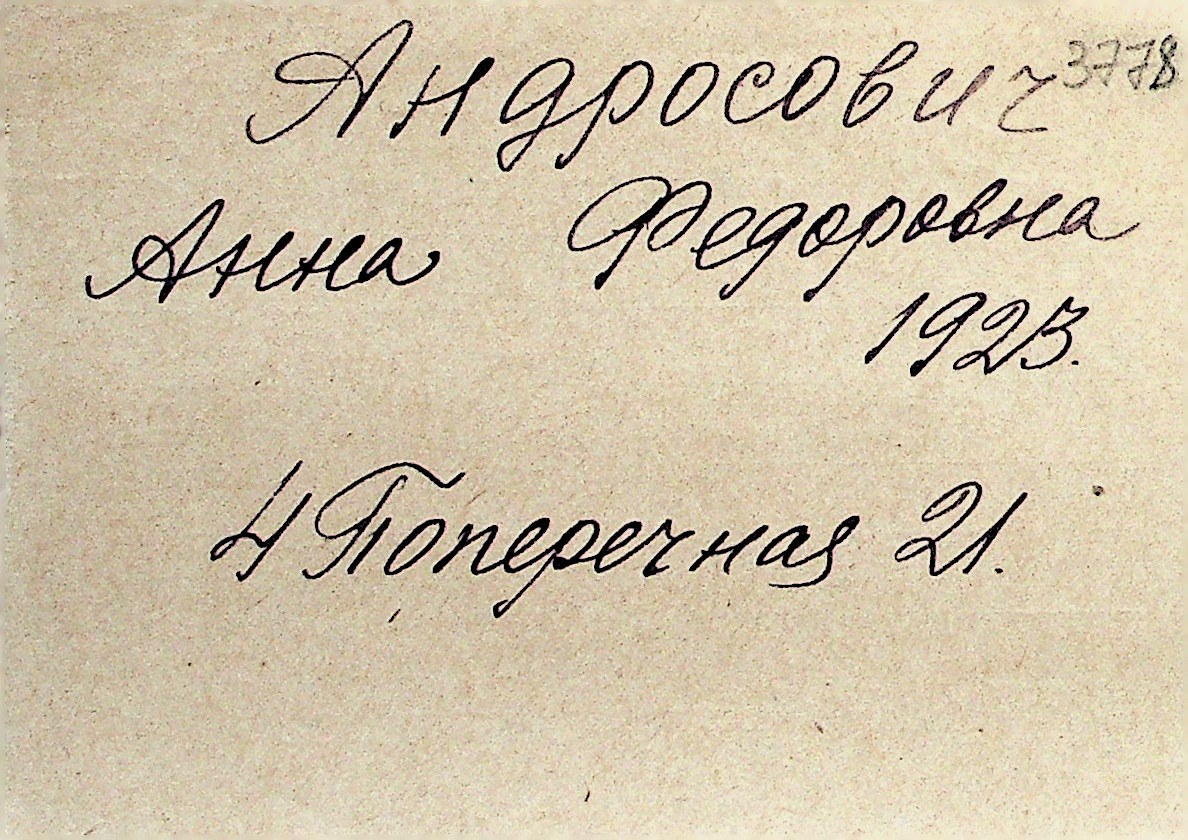 Андросович 3778
Анна Федоровна
1923.
4 Поперечная 21.